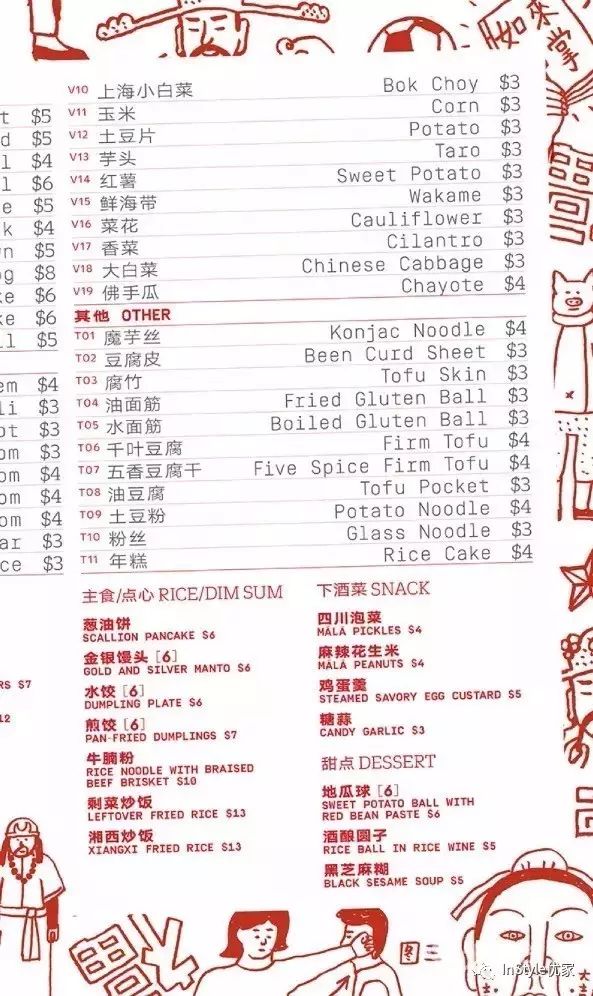 如來掌
t $5
d $5
l $4
l $6
e $5
k $4
n $5
og $8
ke $6
ke $6
l $5
em $4
li $3
ot $3
om $3
om $4
om $4
om $4
ar $3
ce $3
RS $7
12
V10 上海小白菜 Bok Choy $3
V11 玉米 Corn $3
V12 土豆片 Potato $3
V13 芋头 Taro $3
V14 红薯 Sweet Potato $3
V15 鲜海带 Wakame $3
V16 菜花 Cauliflower $3
V17 香菜 Cilantro $3
V18 大白菜 Chinese Cabbage $3
V19 佛手瓜 Chayote $4
其他 OTHER
T01 魔芋丝 Konjac Noodle $4
T02 豆腐皮 Been Curd Sheet $3
T03 腐竹 Tofu Skin $3
T04 油面筋 Fried Gluten Ball $3
T05 水面筋 Boiled Gluten Ball $3
T06 千叶豆腐 Firm Tofu $4
T07 五香豆腐干 Five Spice Firm Tofu $4
T08 油豆腐 Tofu Pocket $3
T09 土豆粉 Potato Noodle $4
T10 粉丝 Glass Noodle $3
T11 年糕 Rice Cake $4
主食/点心 RICE/DIM SUM
葱油饼
SCALLION PANCAKE $6
金银馒头 [6]
GOLD AND SILVER MANTO $6
水饺 [6]
DUMPLING PLATE $6
煎饺 [6]
PAN-FRIED DUMPLINGS $7
牛腩粉
RICE NOODLE WITH BRAISED
BEEF BRISKET $10
剩菜炒饭
LEFTOVER FRIED RICE $13
湘西炒饭
XIANGXI FRIED RICE $13
下酒菜 SNACK
四川泡菜
MÁLÀ PICKLES $4
麻辣花生米
MÁLÀ PEANUTS $4
鸡蛋羹
STEAMED SAVORY EGG CUSTARD $5
糖蒜
CANDY GARLIC $3
甜点 DESSERT
地瓜球 [6]
SWEET POTATO BALL WITH
RED BEAN PASTE $6
酒酿圆子
RICE BALL IN RICE WINE $5
黑芝麻糊
BLACK SESAME SOUP $5
图三
大吉
InStyle优家